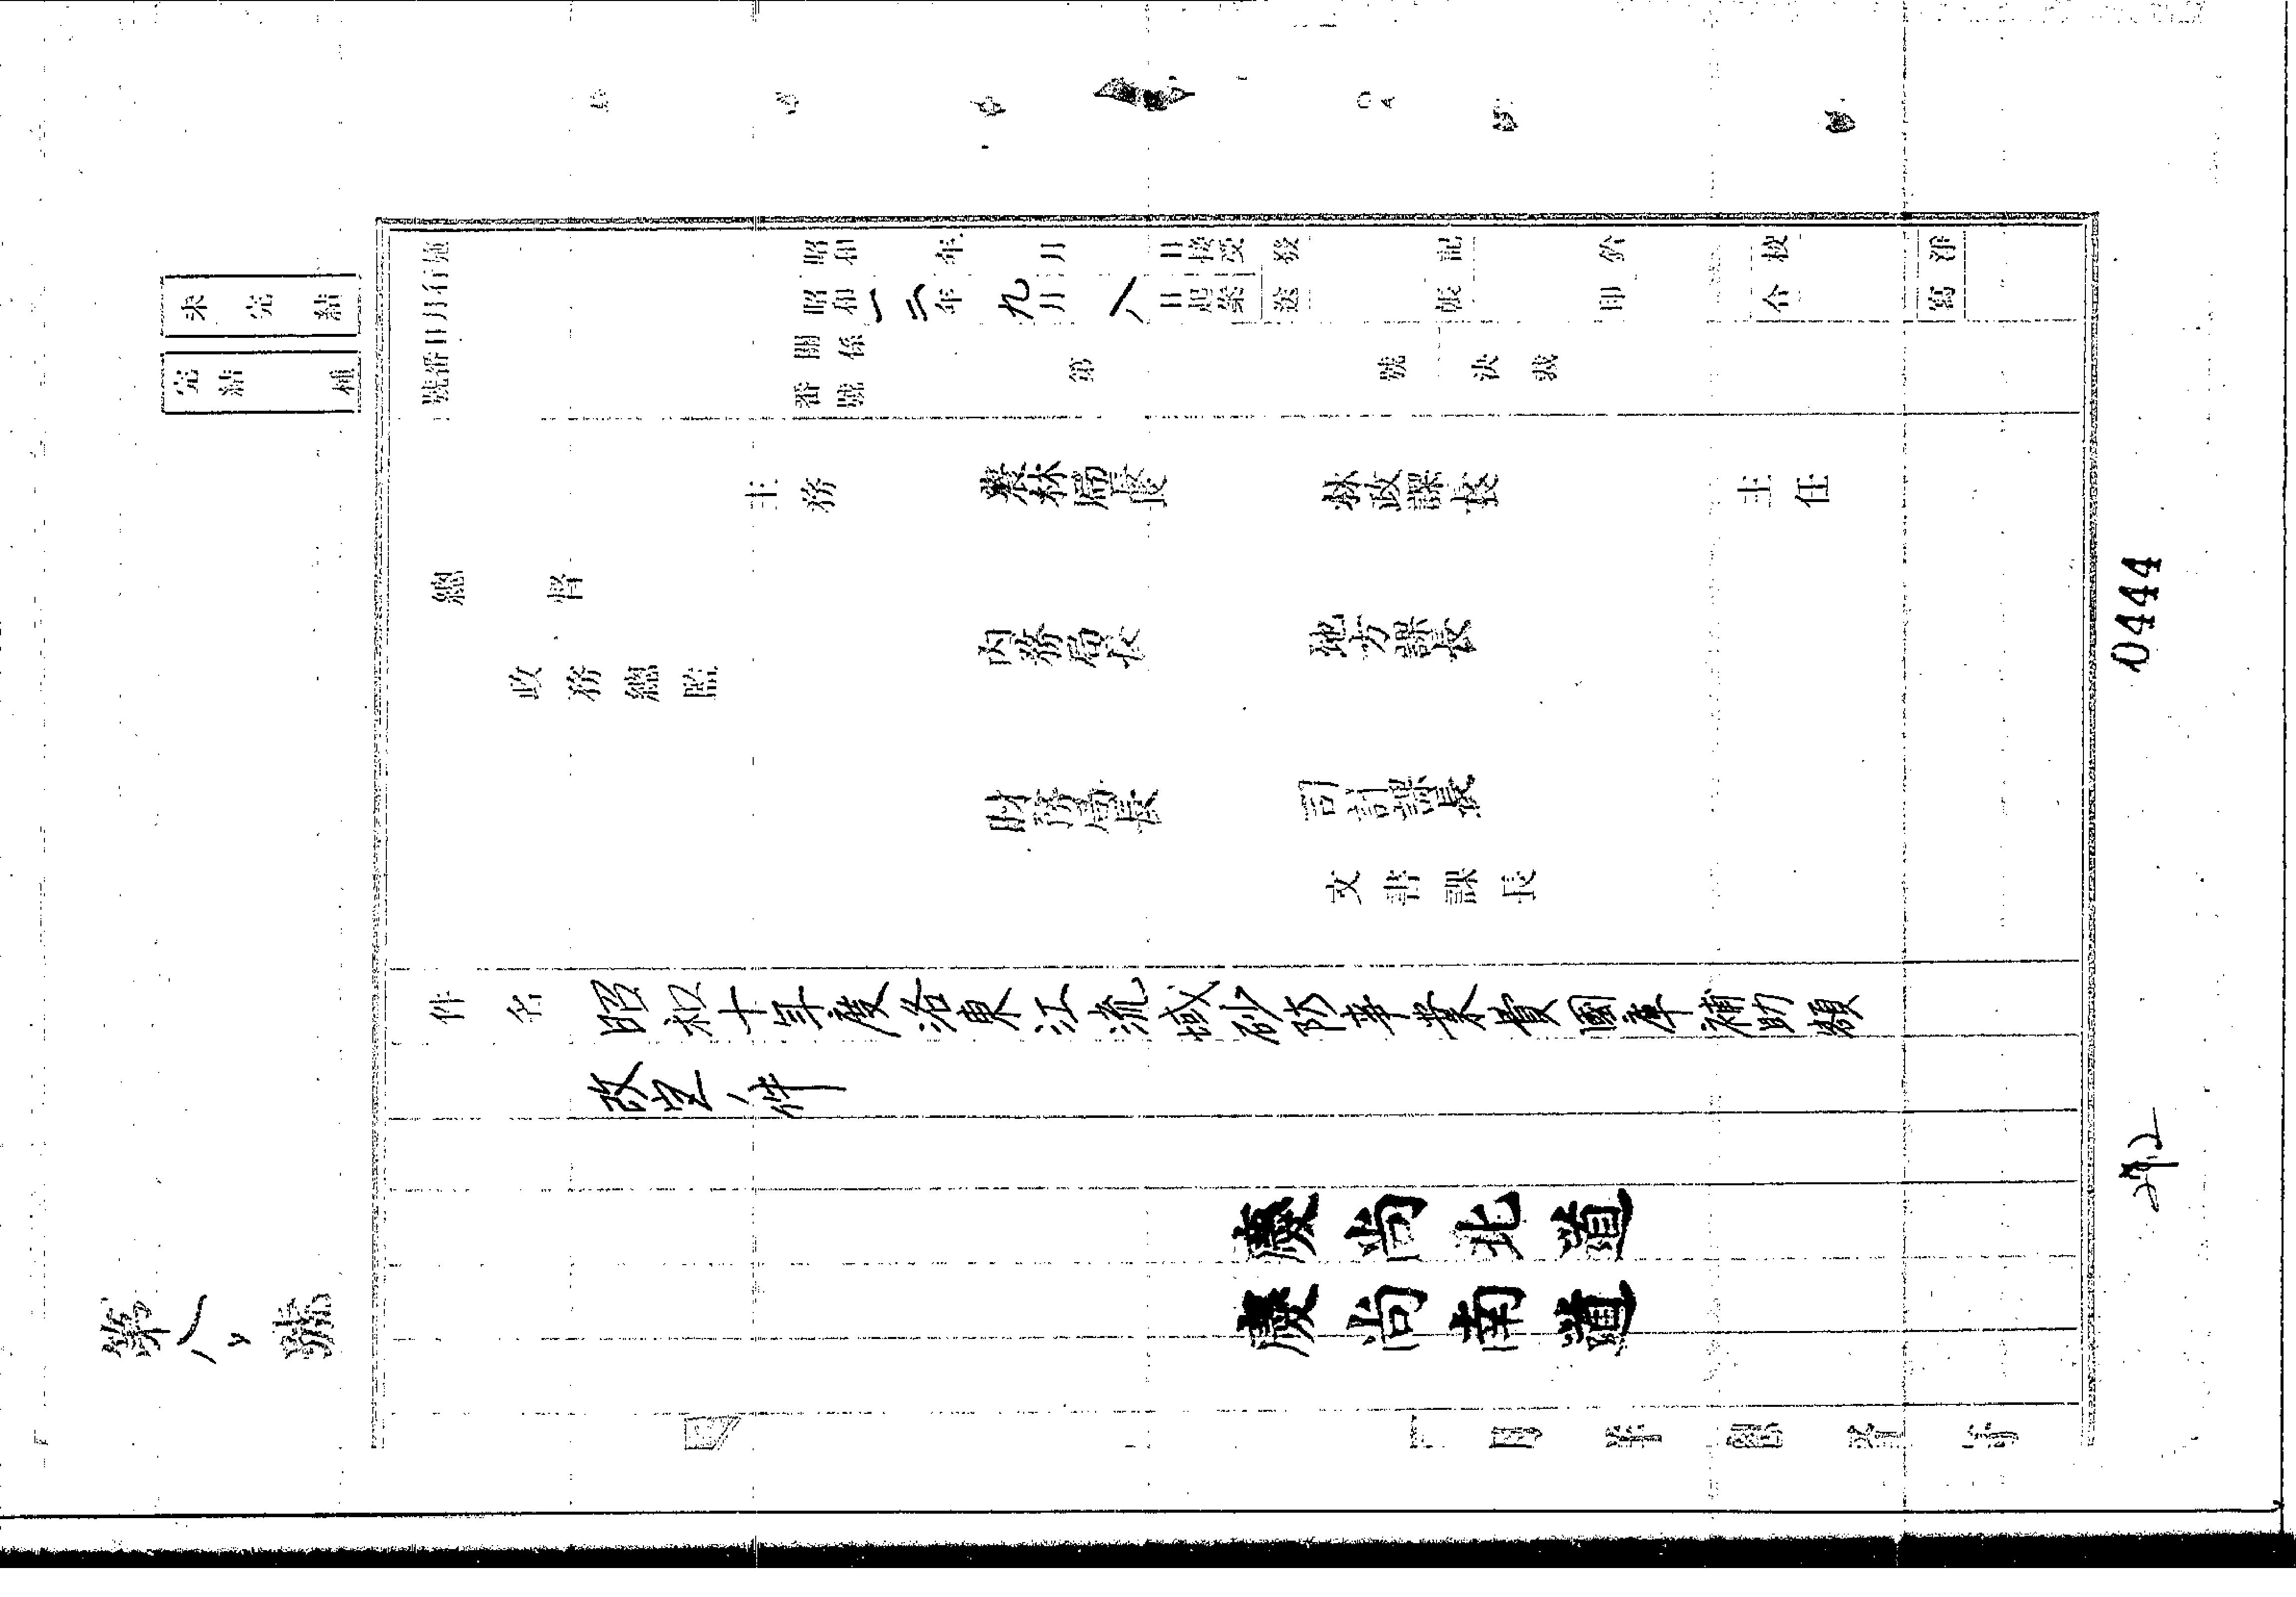 未完結
完結 種
施行月日番號
昭和 年 月 日接受
昭和一二年九月八日起案
發送
記帳
鈐印
校合
淨寫
關係番號
第 號
決裁
主務
農林局長
林政課長
主任
總督
內務局長
地方課長
政務總監
財務局長
司計課長
文書課長
件名
昭和十年度洛東江流域砂防事業費國庫補助額
改定ノ件
慶尚北道
慶尚南道
第 號
0444